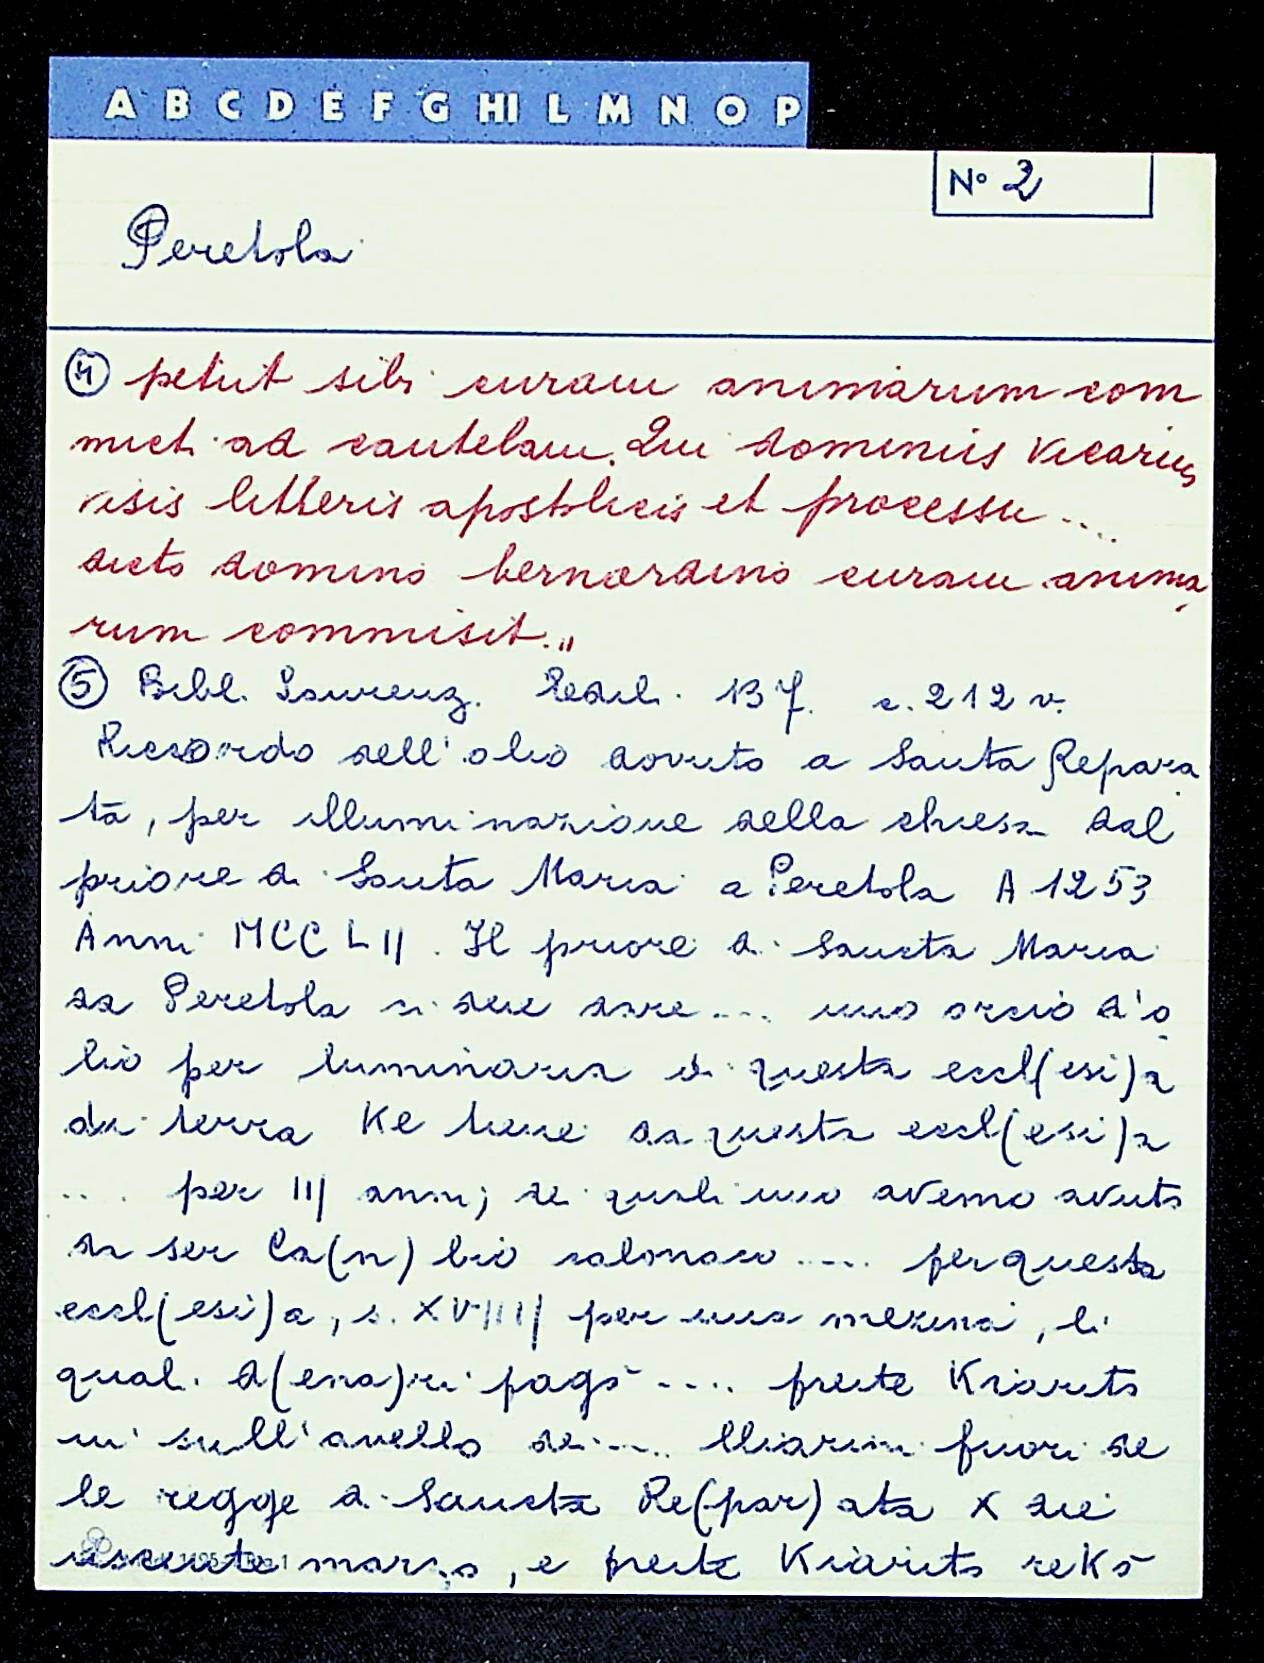 A B C D E F G HI L M N O P
Nº 2
Peretola
④ petiit sibi curam animarum com
micti ad cautelam. Qui dominus vicarius
visis litteris apostolicis et processu ....
dicto domino bernardino curam anima
rum commisit."
⑤ Bibl. Laurenz. Redi. 137. c. 212 v.
Ricordo dell'olio dovuto a Santa Repara
ta, per illuminazione della chiesa dal
priore di Santa Maria a Peretola A 1253
Anni MCCLII. Il priore di Sancta Maria
da Peretola si deve dare .... uno orcio d'o
lio per luminaria di questa eccl(esi)a
di terra Ke tiene da questa eccl(esi)a
.... per III anni; de quali uno avemo avuto
da ser Ca(n)bio calonaco .... per questa
eccl(esi)a, s. XVIIII per una mezina, li
quali d(ena)ri pagò .... preite Kiarito
in sull'avello de .... lliarini fuori de
le regge di Sancta Re(par)ata X die
uscente março, e preite Kiarito rekò